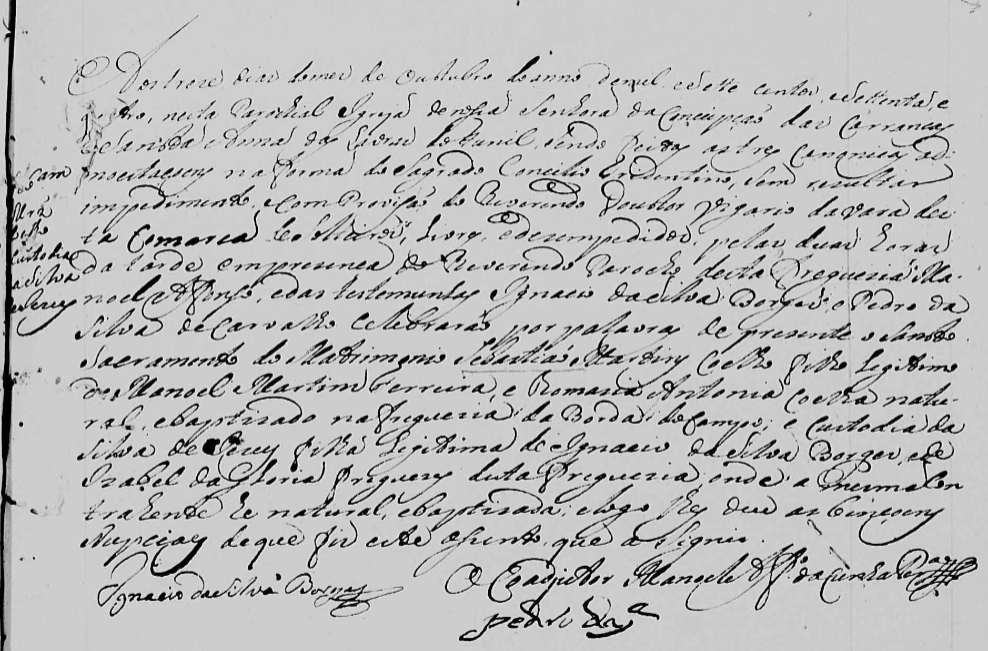 Aos treze dias do mes de Outubro do anno de mil e sette centos, e settenta, e
quatro, nesta Parochial Igreja de nossa Senhora da Conceipção das Carrancas
e Santa Anna das Lavras do Funil, sendo feitas as tres canonicas ad-
moestaçoens na forma do Sagrado Concilio Tridentino, sem rezultar
impedimento, e com Provisão do Reverendo Doutor Vigario da vara des-
ta Comarca livres, e desempedidos, pelas duas horas
da tarde em presença do Reverendo Parocho desta Freguezia Ma-
noel Afonso, e das testemunhas Ignacio da Silva Borges, e Pedro da
Silva de Carvalho celebrarão por palavras de presente o Santo
Sacramento do Matrimonio Sebastião Martins Coelho filho legitimo
de Manoel Martins Ferreira, e Romana Antonia Coelha natu-
ral, e baptizado na freguezia da Borda do Campo; e Custodia da
Silva de filha legitima de Ignacio da Silva Borges, e de
Izabel da Gloria freguezes desta Freguezia, onde a mesma Con
trahente he natural, e baptizada; e logo lhes dei as bençoens
Nupciaes de que fiz este assento, que assignei.
Ignacio da Silva Borges O Coadjutor Manoel Af.º da Cunha Per.ª
Pedro
Custodia
da Silva